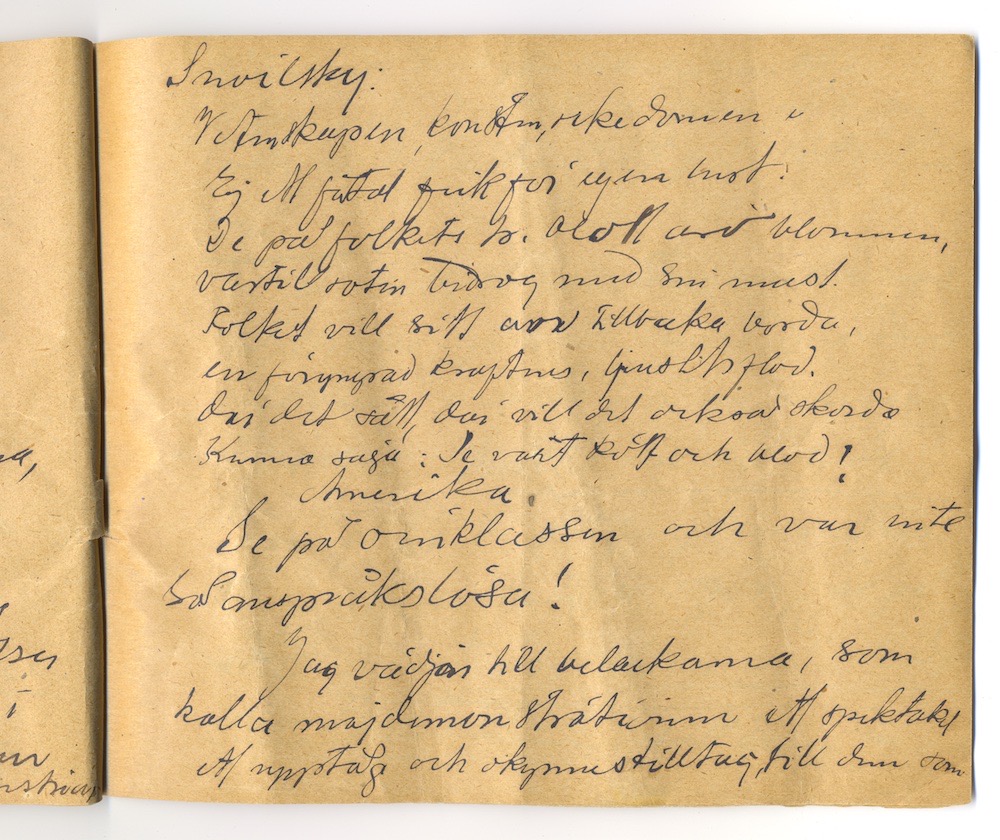 Snoilsky:
Vetenskapen, konsten, rikedomen
Ej ett fåtal fick för egen lust.
De på folkets äro blott blommen,
vartill roten bidrog med sin must.
Folket vill sitt tillbaka vorda,
en föryngrad kraftens, ljusets flod.
Där det sått, där vill det också skörda
Kunna säga: Se vårt kött och blod!
Amerika
Se på överklassen och var inte
så anspråkslösa!
Jag vädjar till belackarna, som
kalla majdemonstrationen ett spektakel
ett upptåg och okynnestilltag, till dem som